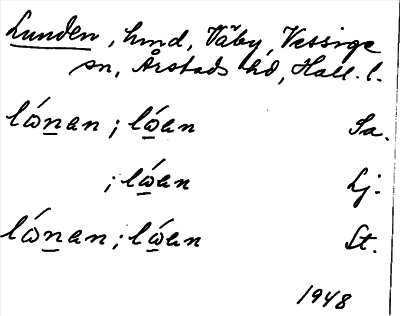 Lunden, hmd, Väby, Vessige
sn, Årstads hd, Hall. l.
lώnan ; lώan Sa.
; lώan Lj.
lώnan ; lώan St.
1948